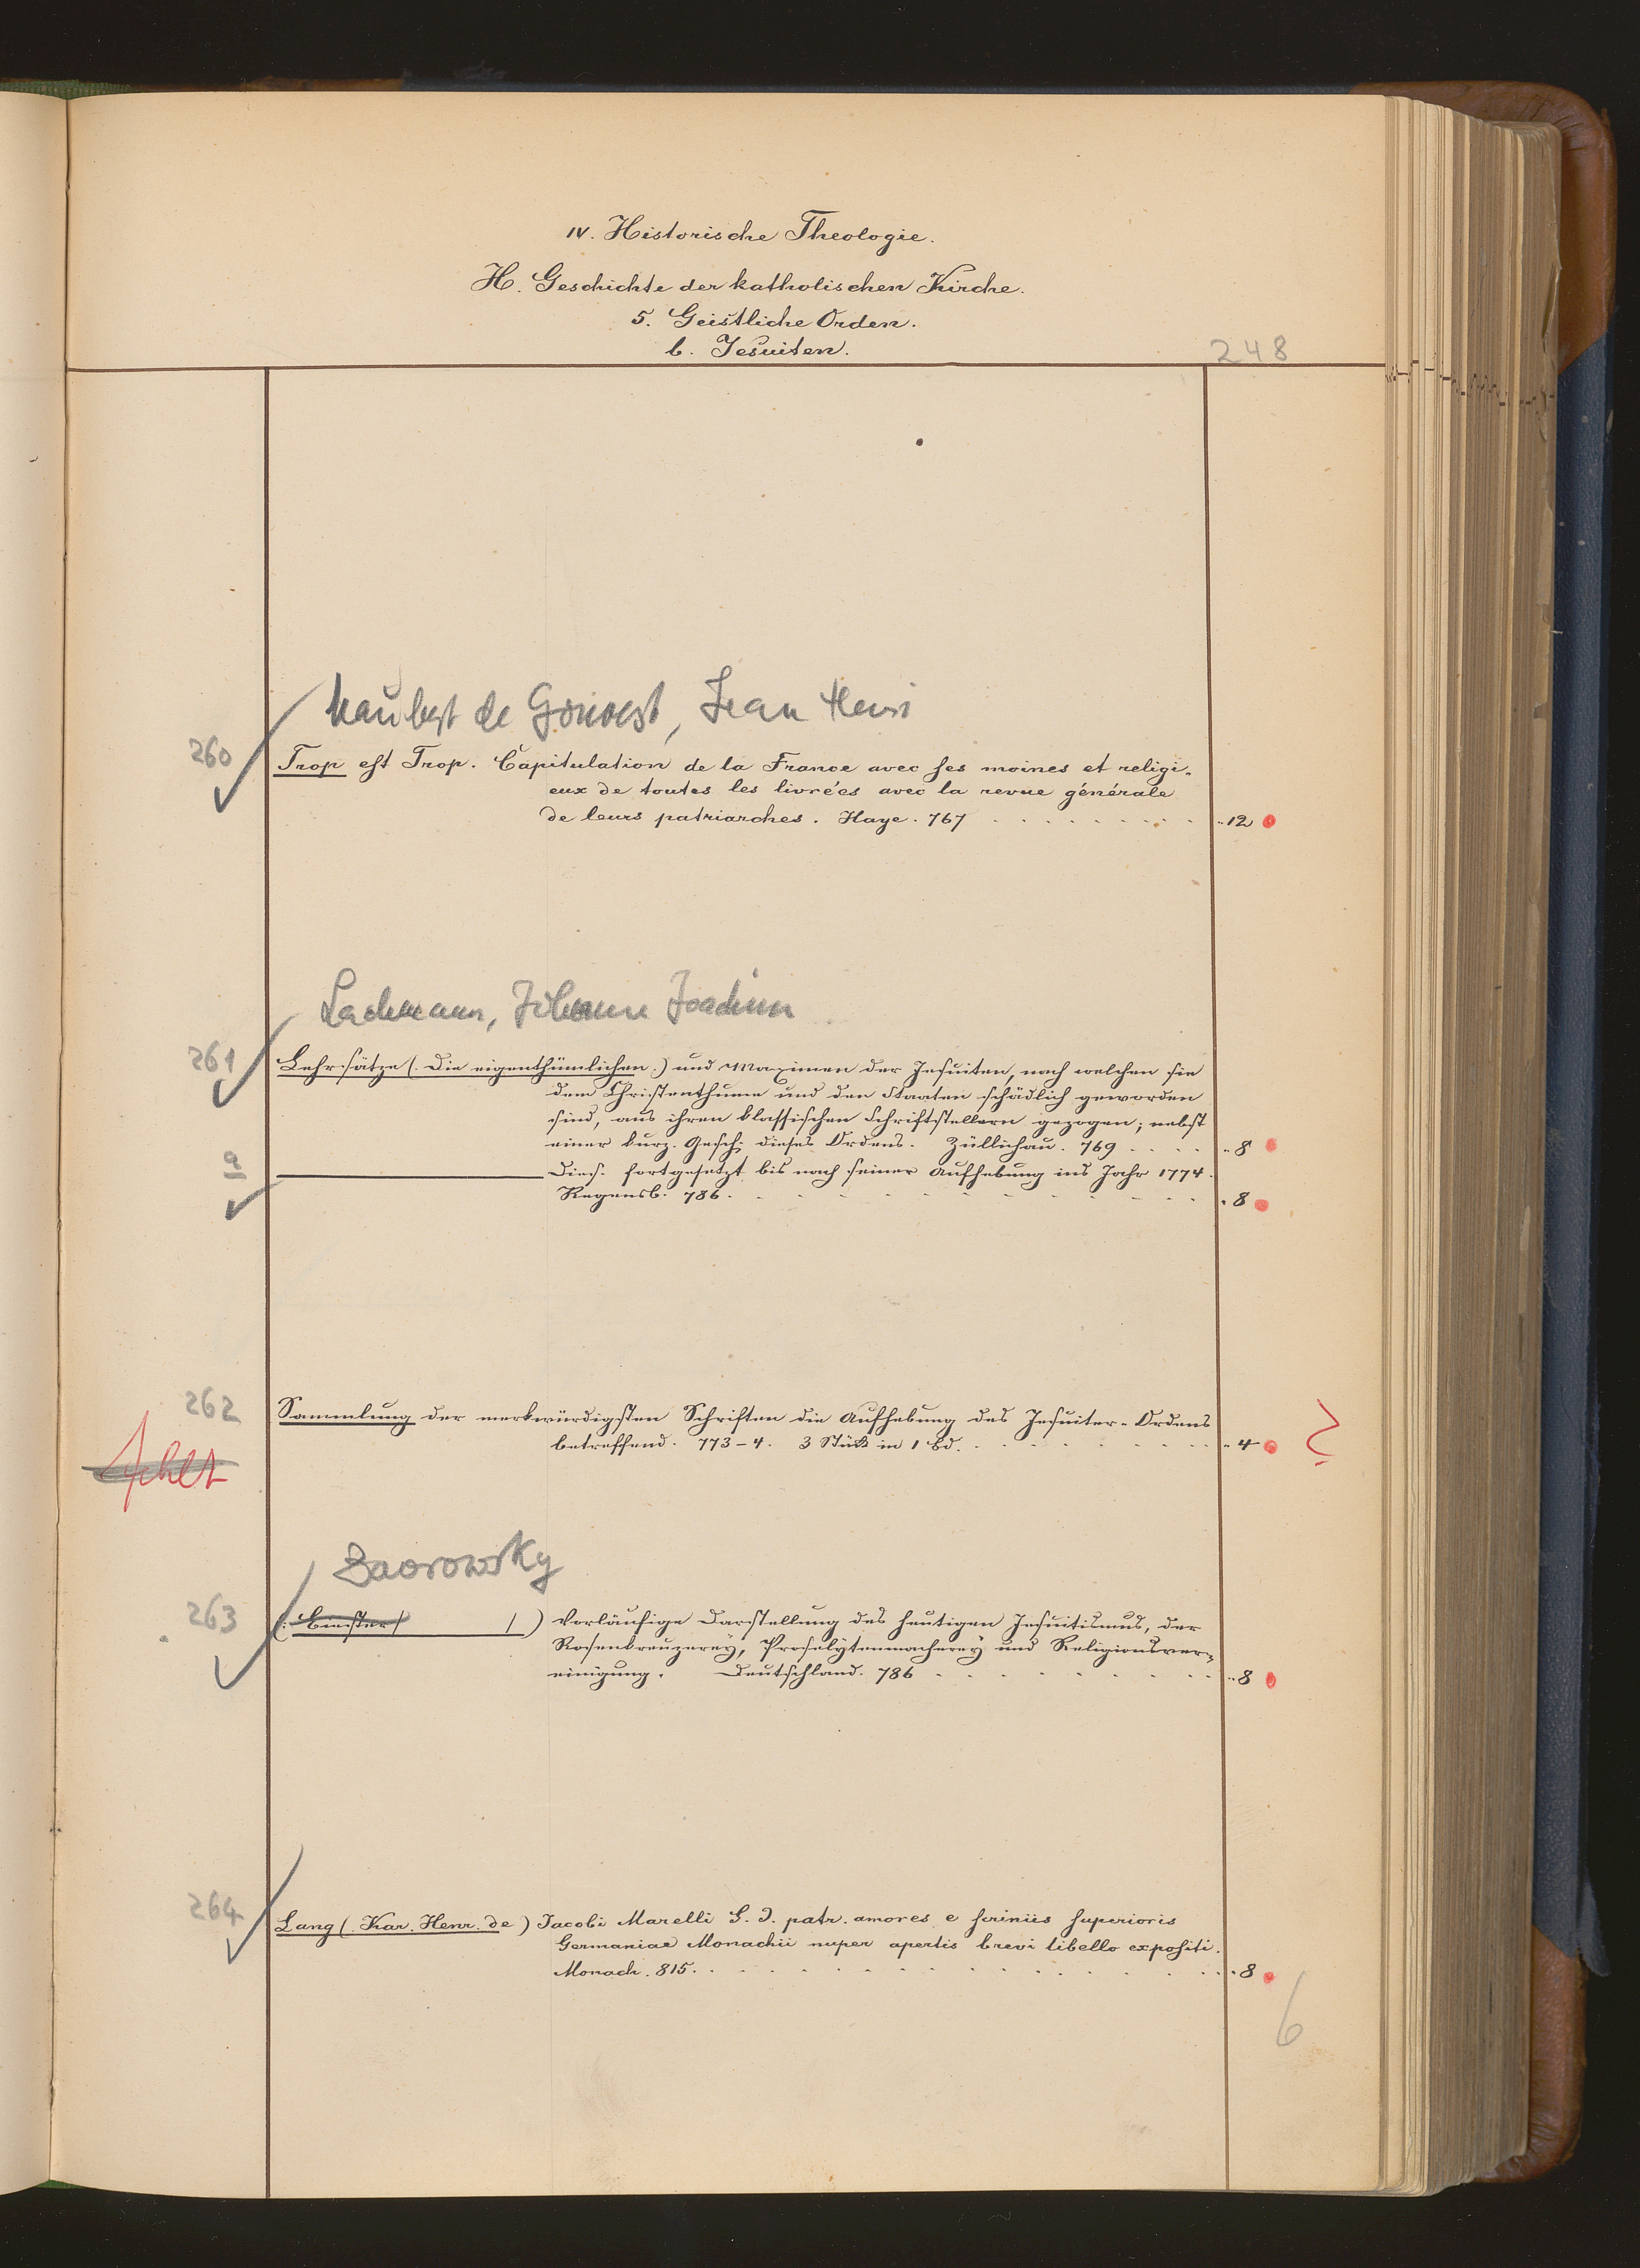 IV. Historische Theologie.
H. Geschichte der katholischen Kirche.
5. Geistliche Orden.
b. Jesuiten.
248
Maubert de Gouvest, Jean Henri
260
Trop est Trop. Capitulation de la France avec ses moines et religi-
eux de toutes les livrées avec la revue générale
de leurs patriarches. Haye. 767 . . . . . . . . . " 12
Lachmann, Johann Joachim
261
Lehrsätze (. Die eigenthümlichen.) und Maximen der Jesuiten, nach welchen sie
dem Christenthume und den Staaten schädlich geworden
sind, aus ihren klassischen Schriftstellern gezogen; nebst
einer kurz. Gesch. dieses Ordens. Züllichau. 769 . . . . " 8
a
Dies. fortgesetzt bis nach seiner Aufhebung ins Jahr 1774.
Regensb. 786 . . . . . . . . . . . . " 8
262
Sammlung der merkwürdigsten Schriften die Aufhebung des Jesuiter-Ordens
betreffend. 773-4. 3 Stück in 1 Bd. . . . . . . . " 4
fehlt
?
263
(. Biester / )
Vorläufige Darstellung des heutigen Jesuitismus, der
Rosenkreuzerey, Proselytenmacherey und Religionsver-
einigung. Deutschland. 786 . . . . . . . . " 8
264
Lang (. Kar. Henr. de) Jacobi Marelli S. J. patr. amores e scriniis superioris
Germaniae Monachii nuper apertis brevi libello expositi.
Monach. 815. . . . . . . . . . . . . . " 8
6